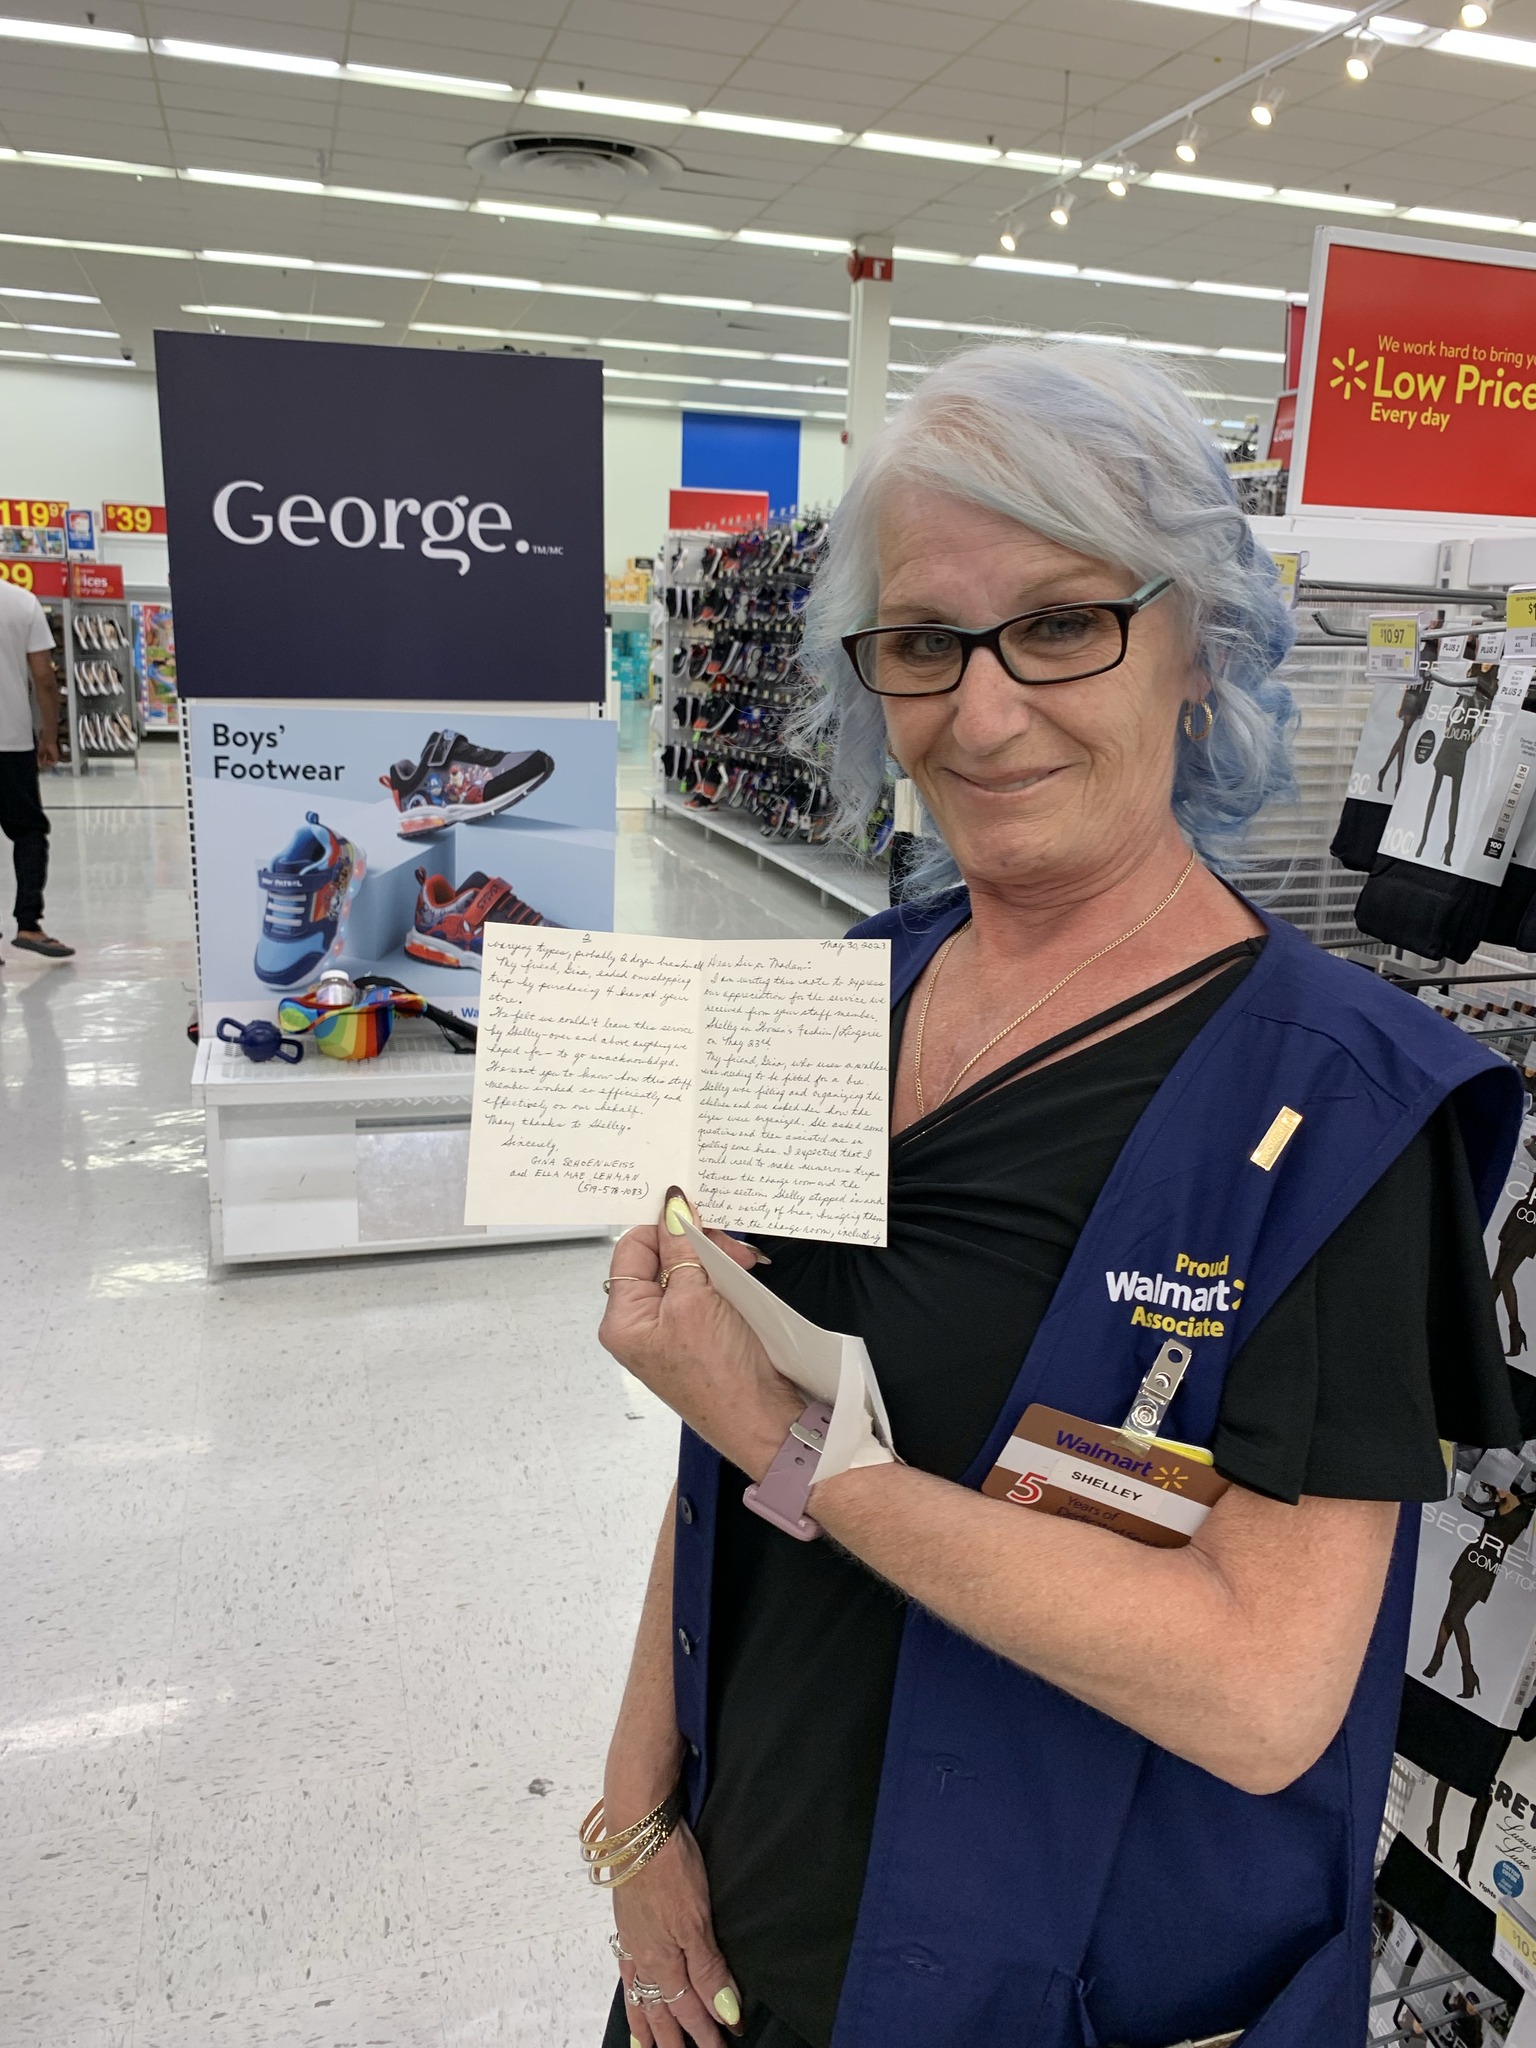 We work hard to bring yo
Low Price
Every day
119.97
$39
29
George.
TM/MC
Boys'
Footwear
PAW PATROL
$10.97
PLUS 2
PLUS 2
PLUS 2
SECRET
LUXURY LUXE
100
2
varying types, probably 2 dozen bras in all
My friend, Gina, ended our shopping
trip by purchasing 4 bras at your
store.
We felt we couldn't leave this service
by Shelley - over and above anything we
hoped for - to go unacknowledged.
We want you to know how this staff
member worked so efficiently and
effectively on our behalf.
Many thanks to Shelley.
Sincerely,
GINA SCHOENWEISS
and ELLA MAE LEHMAN
(519-578-1083)
May 30, 2023
Dear Sir or Madam:
I am writing this note to express
our appreciation for the service we
received from your staff member,
Shelley in Women's Fashion/Lingerie
on May 23rd
My friend, Gina, who uses a walker
was needing to be fitted for a bra.
Shelley was filling and organizing the
shelves and we asked her how the
sizes were organized. She asked some
questions and then assisted me in
pulling some bras. I expected that I
would need to make numerous trips
between the change room and the
lingerie section. Shelley stepped in and
pulled a variety of bras, bringing them
directly to the change room, including
Proud
Walmart
Associate
Walmart
SHELLEY
5 Years of
SECRET
COMFY-TO
Luxury
Luxe
Tights